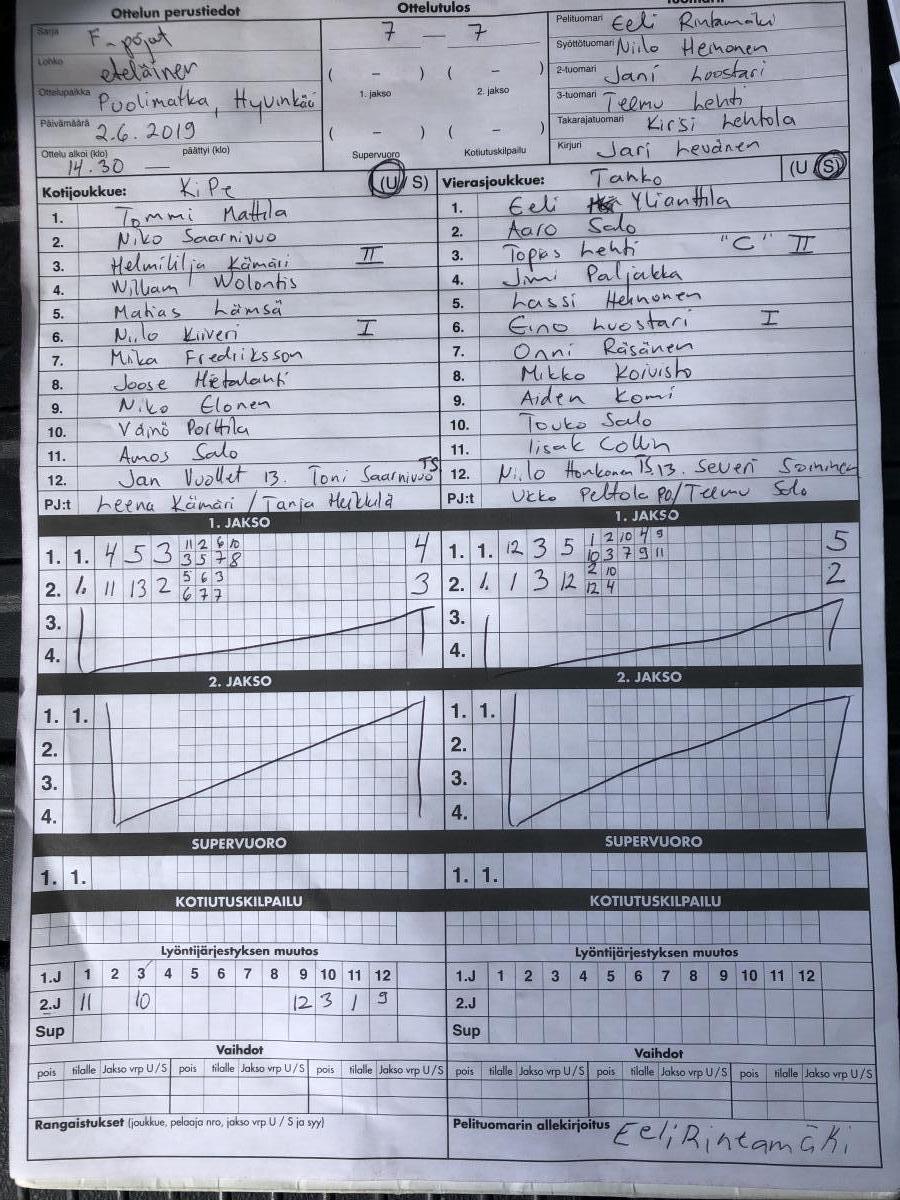 Ottelun perustiedot
Ottelutulos
Sarja F-pojat
7 — 7
Pelituomari Eeli Rintamäki
Lohko eteläinen
( – ) ( – )
Syöttötuomari Niilo Heinonen
2-tuomari Jani Loostari
Ottelupaikka Puolimatka, Hyvinkää
1. jakso 2. jakso
3-tuomari Teemu Lehti
Päivämäärä 2.6. 2019
( – ) ( – )
Takarajatuomari Kirsi Lehtola
Ottelu alkoi (klo) päättyi (klo)
14.30 —
Supervuoro Kotiutuskilpailu
Kirjuri Jari Levänen
Kotijoukkue: KiPe (U / S) Vierasjoukkue: Tahko (U / S)
1. Tommi Mattila 1. Eeli Ylianttila
2. Niko Saarnivuo 2. Aaro Salo
3. Helmililja Kämäri II 3. Topias Lehti "C" II
4. William Wolontis 4. Jimi Paljakka
5. Matias Lämsä 5. Lassi Heinonen
6. Niilo Kiiveri I 6. Eino Luostari I
7. Mika Fredriksson 7. Onni Räsänen
8. Joose Hietalahti 8. Mikko Koivisto
9. Niko Elonen 9. Aiden Komi
10. Väinö Porttila 10. Touko Salo
11. Amos Salo 11. Iisak Collin
12. Jan Vuollet 13. Toni Saarnivuo TS 12. Niilo Honkonen TS, 13. Severi Soininen
PJ:t Leena Kämäri / Tanja Heikkilä PJ:t Ukko Peltola PO/Teemu Salo
1. JAKSO 1. JAKSO
1. 1. 4 5 3 11 2 6 10 4 1. 1. 12 3 5 1 2 10 4 9 5
3 5 7 8 10 3 7 9 11
2. 1. 11 13 2 5 6 3 3 2. 1. 1 3 12 2 10 2
6 7 7 12 4
3. 3.
4. 4.
2. JAKSO 2. JAKSO
1. 1. 1. 1.
2. 2.
3. 3.
4. 4.
SUPERVUORO SUPERVUORO
1. 1. 1. 1.
KOTIUTUSKILPAILU KOTIUTUSKILPAILU
Lyöntijärjestyksen muutos Lyöntijärjestyksen muutos
1.J 1 2 3 4 5 6 7 8 9 10 11 12 1.J 1 2 3 4 5 6 7 8 9 10 11 12
2.J 11 10 12 3 1 9 2.J
Sup Sup
Vaihdot Vaihdot
pois tilalle Jakso vrp U/S pois tilalle Jakso vrp U/S pois tilalle Jakso vrp U/S pois tilalle Jakso vrp U/S pois tilalle Jakso vrp U/S pois tilalle Jakso vrp U/S
Rangaistukset (joukkue, pelaaja nro, jakso vrp U / S ja syy) Pelituomarin allekirjoitus Eeli Rintamäki